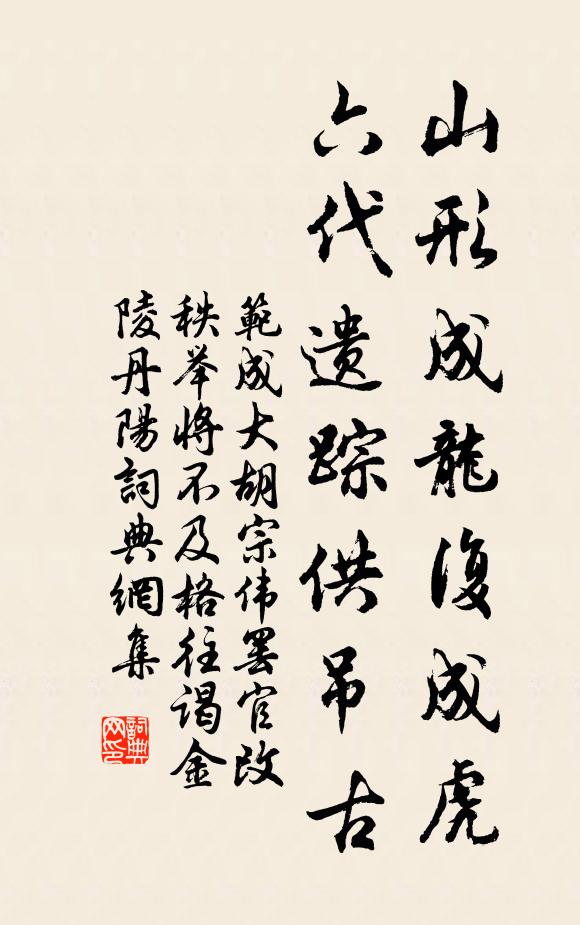 山形成龍復成虎
六代遗踪供吊古
範成大胡宗伟罢官改
秩举将不及格往谒金
陵丹陽詞典網集
詞典
网印